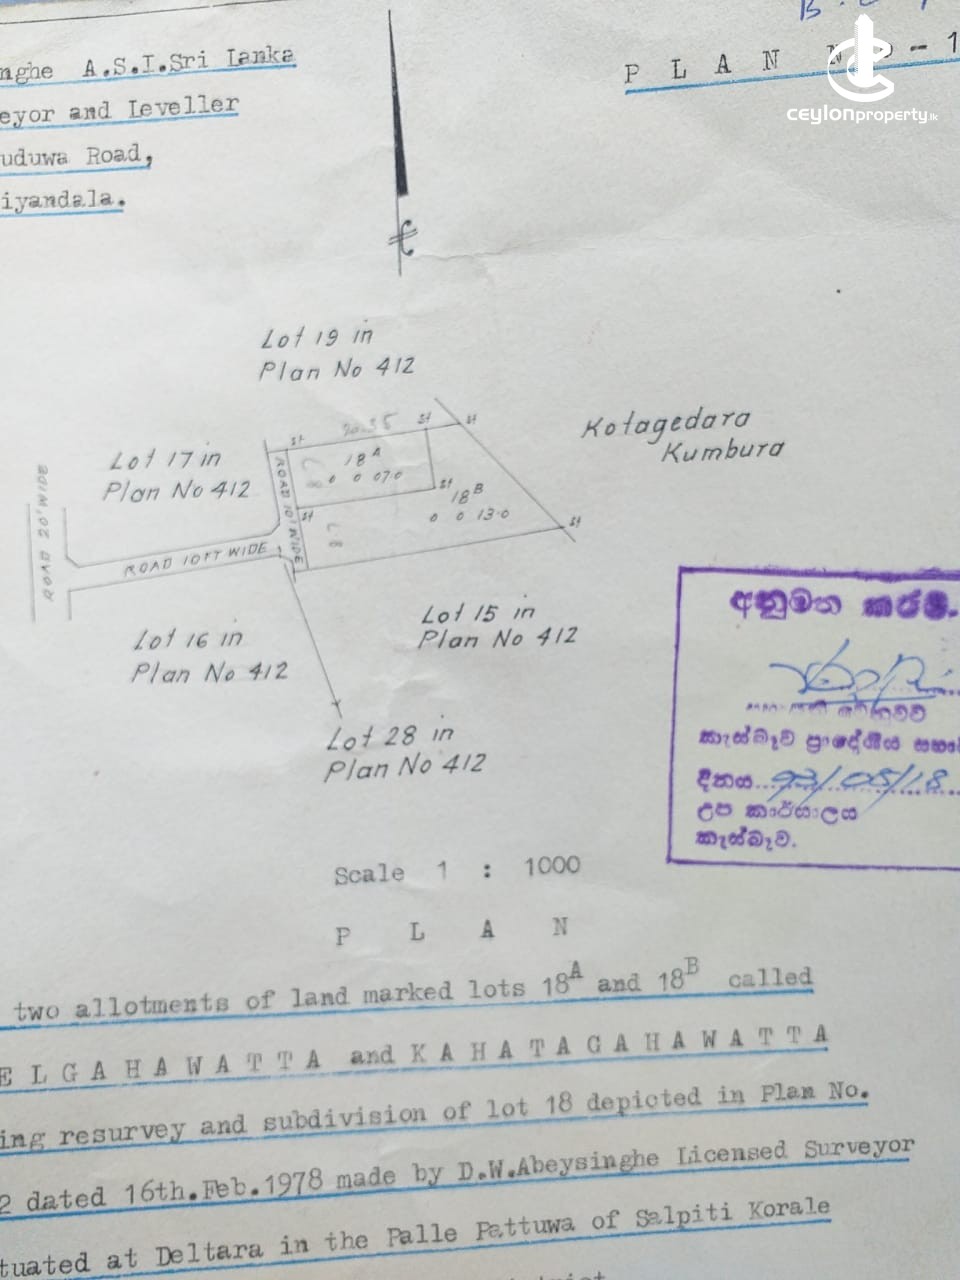 nghe A.S.I.Sri Lanka
eyor and Leveller
uduwa Road,
iyandala.
PLAN
ceylonproperty.lk
Lot 19 in
Plan No 412
Kotagedara
Kumbura
Lot 17 in
Plan No 412
st
20.35
st
st
18A
0 0 07.0
st
18B
0 0 13.0
st
st
ROAD 10' WIDE
ROAD 20' WIDE
ROAD 10FT WIDE
Lot 16 in
Plan No 412
Lot 15 in
Plan No 412
Lot 28 in
Plan No 412
අනුමත කරමි.
කැස්බෑව ප්‍රාදේශීය
දිනය...93/05/18
උප කාර්යාලය
කැස්බෑව.
Scale 1 : 1000
P L A N
two allotments of land marked lots 18A and 18B called
ELGAHAWATTA and KAHATAGAHAWATTA
ing resurvey and subdivision of lot 18 depicted in Plan No.
2 dated 16th.Feb.1978 made by D.W.Abeysinghe Licensed Surveyor
tuated at Deltara in the Palle Pattuwa of Salpiti Korale